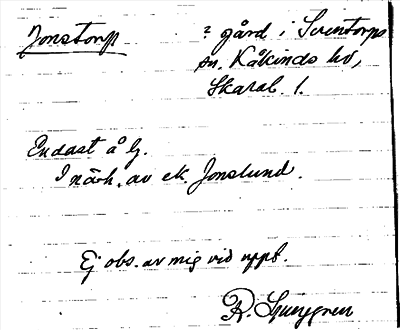 Jonstorp
? gård i Sventorps
sn. Kåkinds hd,
Skarab. l.
Endast å Lj.
I närh. av ek. Jonslund.
Ej obs. av mig vid uppt.
R. Ljunggren